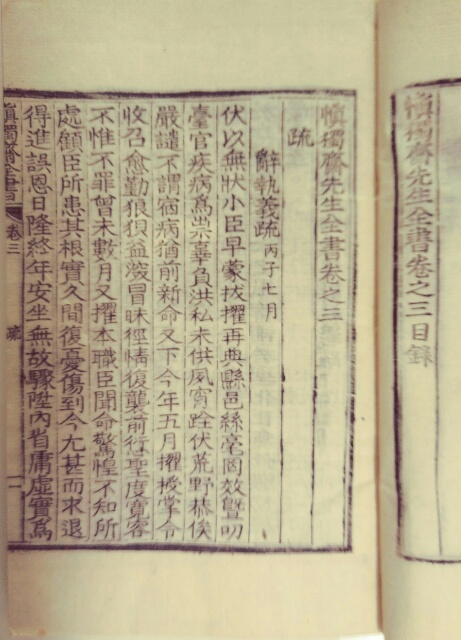 愼獨齋先生全書卷之三目錄
愼獨齋先生全書卷之三
疏
辭執義疏 丙子七月
伏以無狀小臣早蒙拔擢再典縣邑絲毫罔效曁叨
臺官疾病爲祟辜負洪私未供夙宵跧伏荒野恭俟
嚴譴不謂宿病猶前新命又下今年五月擢授掌令
收召愈勤狼狽益深冒昧徑情復襲前愆聖度寬容
不惟不罪曾未數月又擢本職臣聞命驚惶不知所
處顧臣所患其根實久間復憂傷到今尤甚而求退
得進誤恩日隆終年安坐無故驟陞內省庸虛實爲
愼獨齋全書 卷三 疏 一